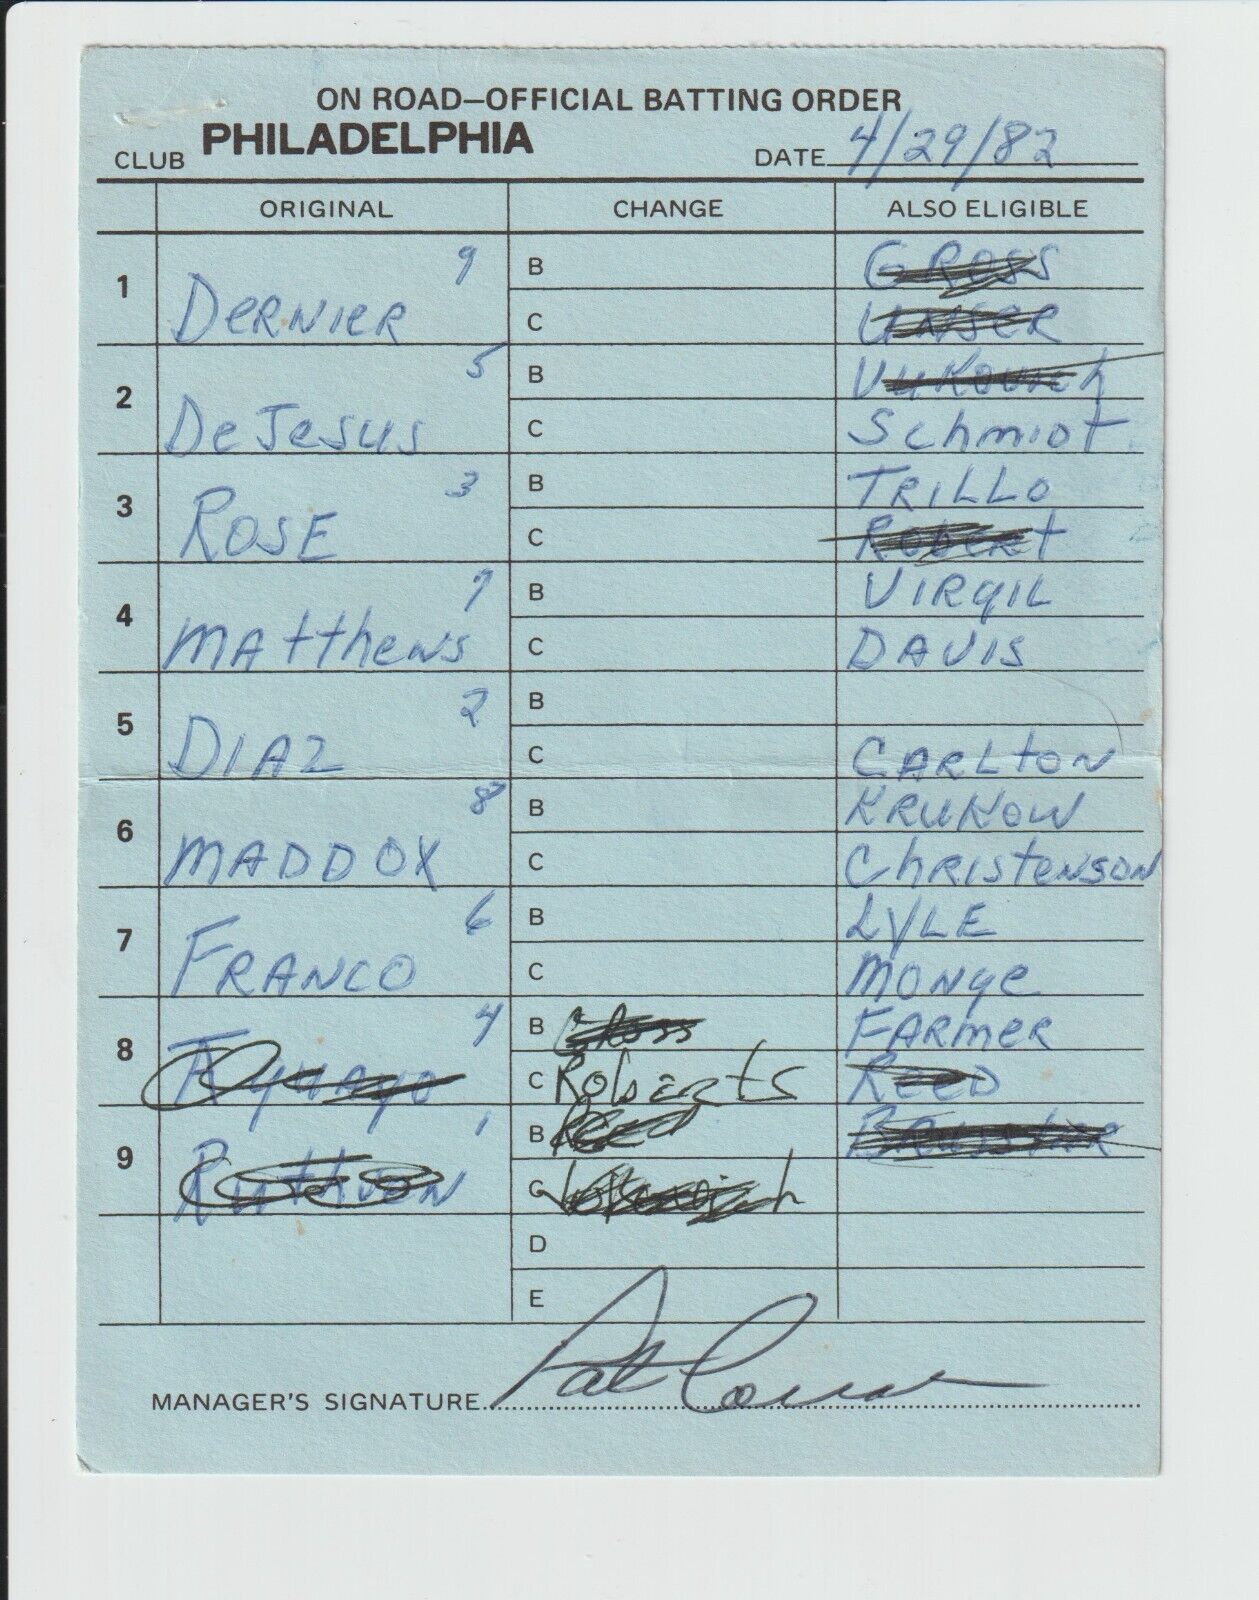 ON ROAD—OFFICIAL BATTING ORDER
CLUB PHILADELPHIA DATE 4/29/82
ORIGINAL CHANGE ALSO ELIGIBLE
1 DERNIER 9 B GROSS
C UNSER
2 DeJesus 5 B Vukovich
C Schmidt
3 ROSE 3 B TRILLO
C Robert
4 MAtthews 7 B VIRGIL
C DAVIS
5 DIAZ 2 B
C CARLtON
6 MADDOX 8 B KRUKOW
C ChRIStENSON
7 FRANCO 6 B LYLE
C MONge
8 Aguayo 4 B Gross FARMER
C Roberts REED
9 Ruthven 1 B Reed
C Vukovich
D
E
MANAGER'S SIGNATURE Pat Corrales